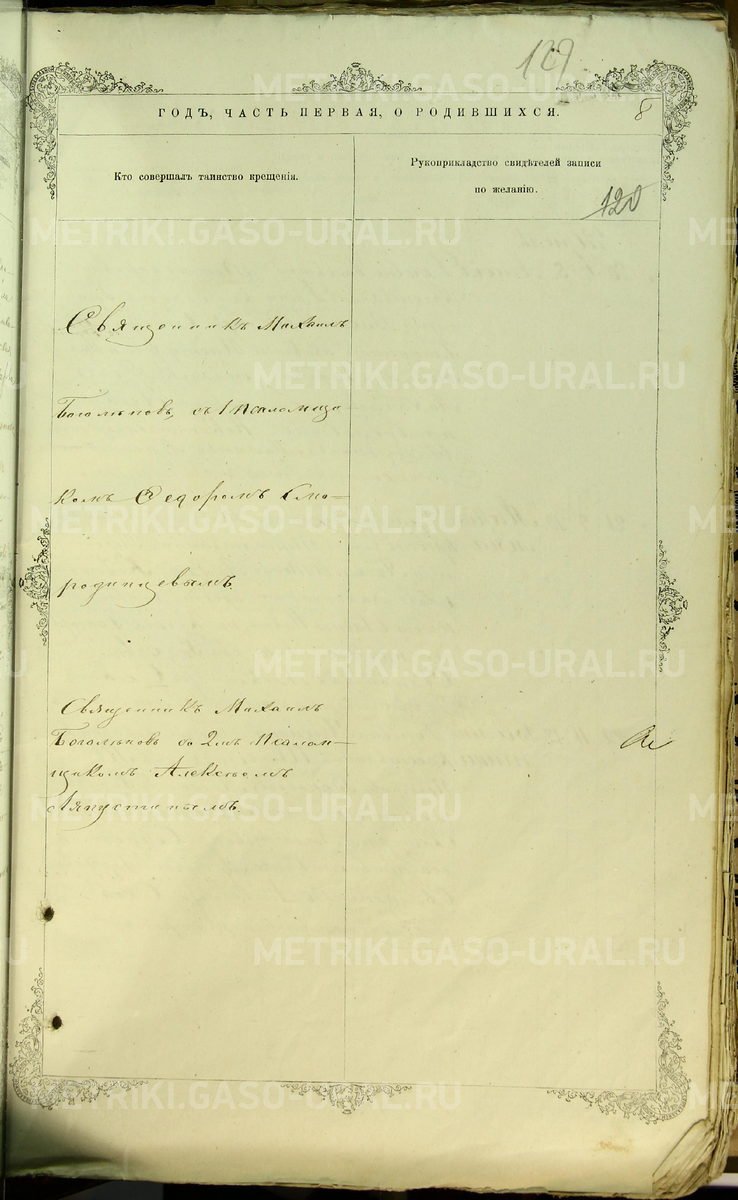 129
ГОДЪ, ЧАСТЬ ПЕРВАЯ, О РОДИВШИХСЯ.
8
Кто совершалъ таинство крещенія.
Рукоприкладство свидѣтелей записи
по желанію.
120
Священникъ Михаилъ
Боголѣповъ, съ 1 псаломщи
комъ Ѳедоромъ Смо-
родинцевымъ.
Священникъ Михаилъ
Боголѣповъ со 2мъ Псалом-
щикомъ Алексѣемъ
Ляпустинымъ.
METRIKI.GASO-URAL.RU